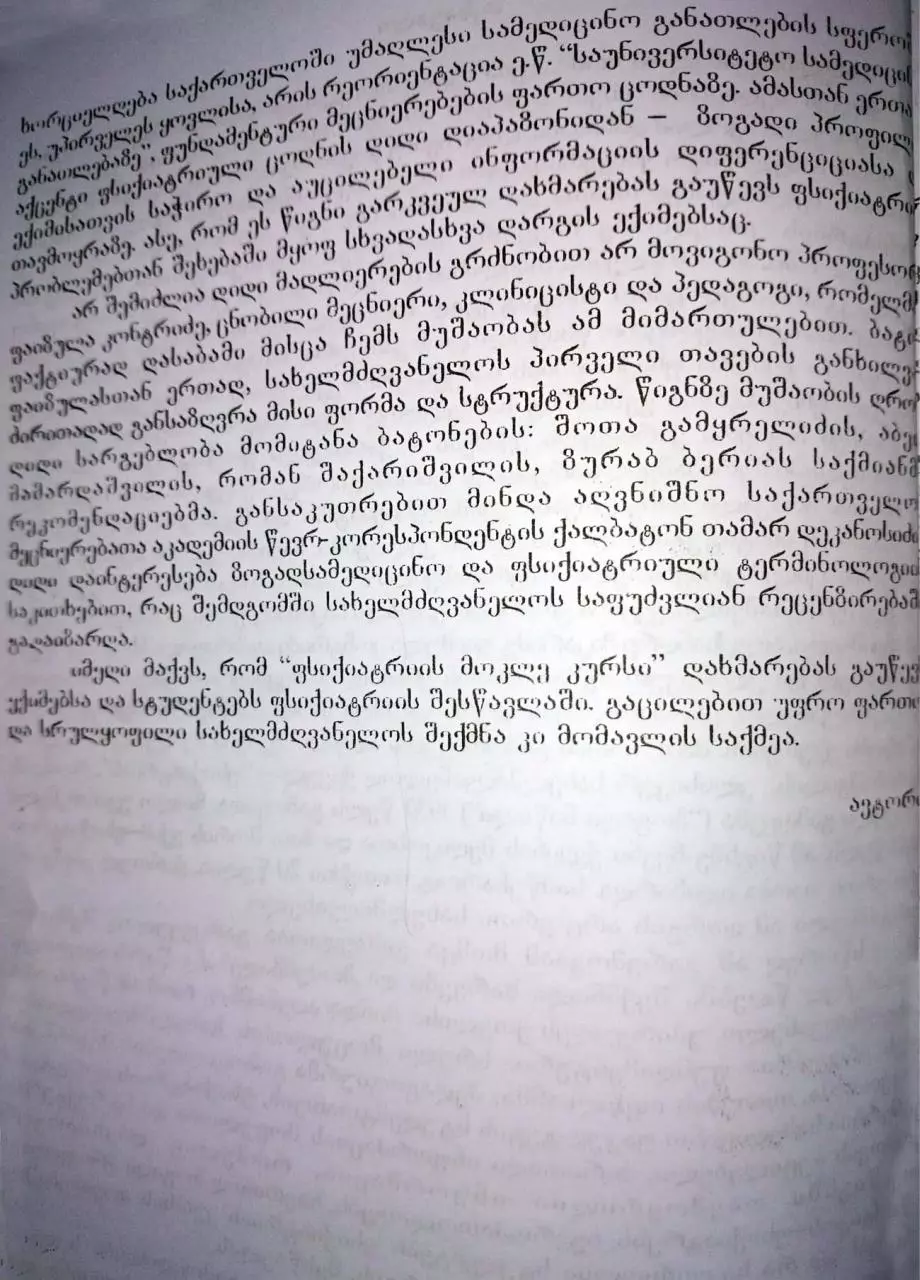 ხორციელდება საქართველოში უმაღლესი სამედიცინო განათლების სფერო
ეს, უპირველეს ყოვლისა, არის რეორიენტაცია ე.წ. “საუნივერსიტეტო სამედიცი
განათლებაზე”, ფუნდამენტური მეცნიერებების ფართო ცოდნაზე. ამასთან ერთა
აქცენტი ფსიქიატრიული ცოდნის დიდი დიაპაზონიდან – ზოგადი პროფილ
ექიმისათვის საჭირო და აუცილებელი ინფორმაციის დიფერენციციასა
თავმოყრაზე. ასე, რომ ეს წიგნი გარკვეულ დახმარებას გაუწევს ფსიქიატრი
პრობლემებთან შეხებაში მყოფ სხვადასხვა დარგის ექიმებსაც.
არ შემიძლია დიდი მადლიერების გრძნობით არ მოვიგონო პროფესორ
ფაიზულა კონტრიძე, ცნობილი მეცნიერი, კლინიცისტი და პედაგოგი, რომელმ
ფაქტიურად დასაბამი მისცა ჩემს მუშაობას ამ მიმართულებით. ბატ
ფაიზულასთან ერთად, სახელმძღვანელოს პირველი თავების განხილვ
ძირითადად განსაზღვრა მისი ფორმა და სტრუქტურა. წიგნზე მუშაობის დრო
დიდი სარგებლობა მომიტანა ბატონების: შოთა გამყრელიძის, აბე
მამარდაშვილის, რომან შაქარიშვილის, ზურაბ ბერიას საქმიანმ
რეკომენდაციებმა. განსაკუთრებით მინდა აღვნიშნო საქართველო
მეცნიერებათა აკადემიის წევრ-კორესპონდენტის ქალბატონ თამარ დეკანოსიძი
დიდი დაინტერესება ზოგადსამედიცინო და ფსიქიატრიული ტერმინოლოგიი
საკითხებით, რაც შემდგომში სახელმძღვანელოს საფუძვლიან რეცენზირებაშ
გადაიზარდა.
იმედი მაქვს, რომ “ფსიქიატრიის მოკლე კურსი” დახმარებას გაუწევ
ექიმებსა და სტუდენტებს ფსიქიატრიის შესწავლაში. გაცილებით უფრო ფართო
და სრულყოფილი სახელმძღვანელოს შექმნა კი მომავლის საქმეა.
ავტორი